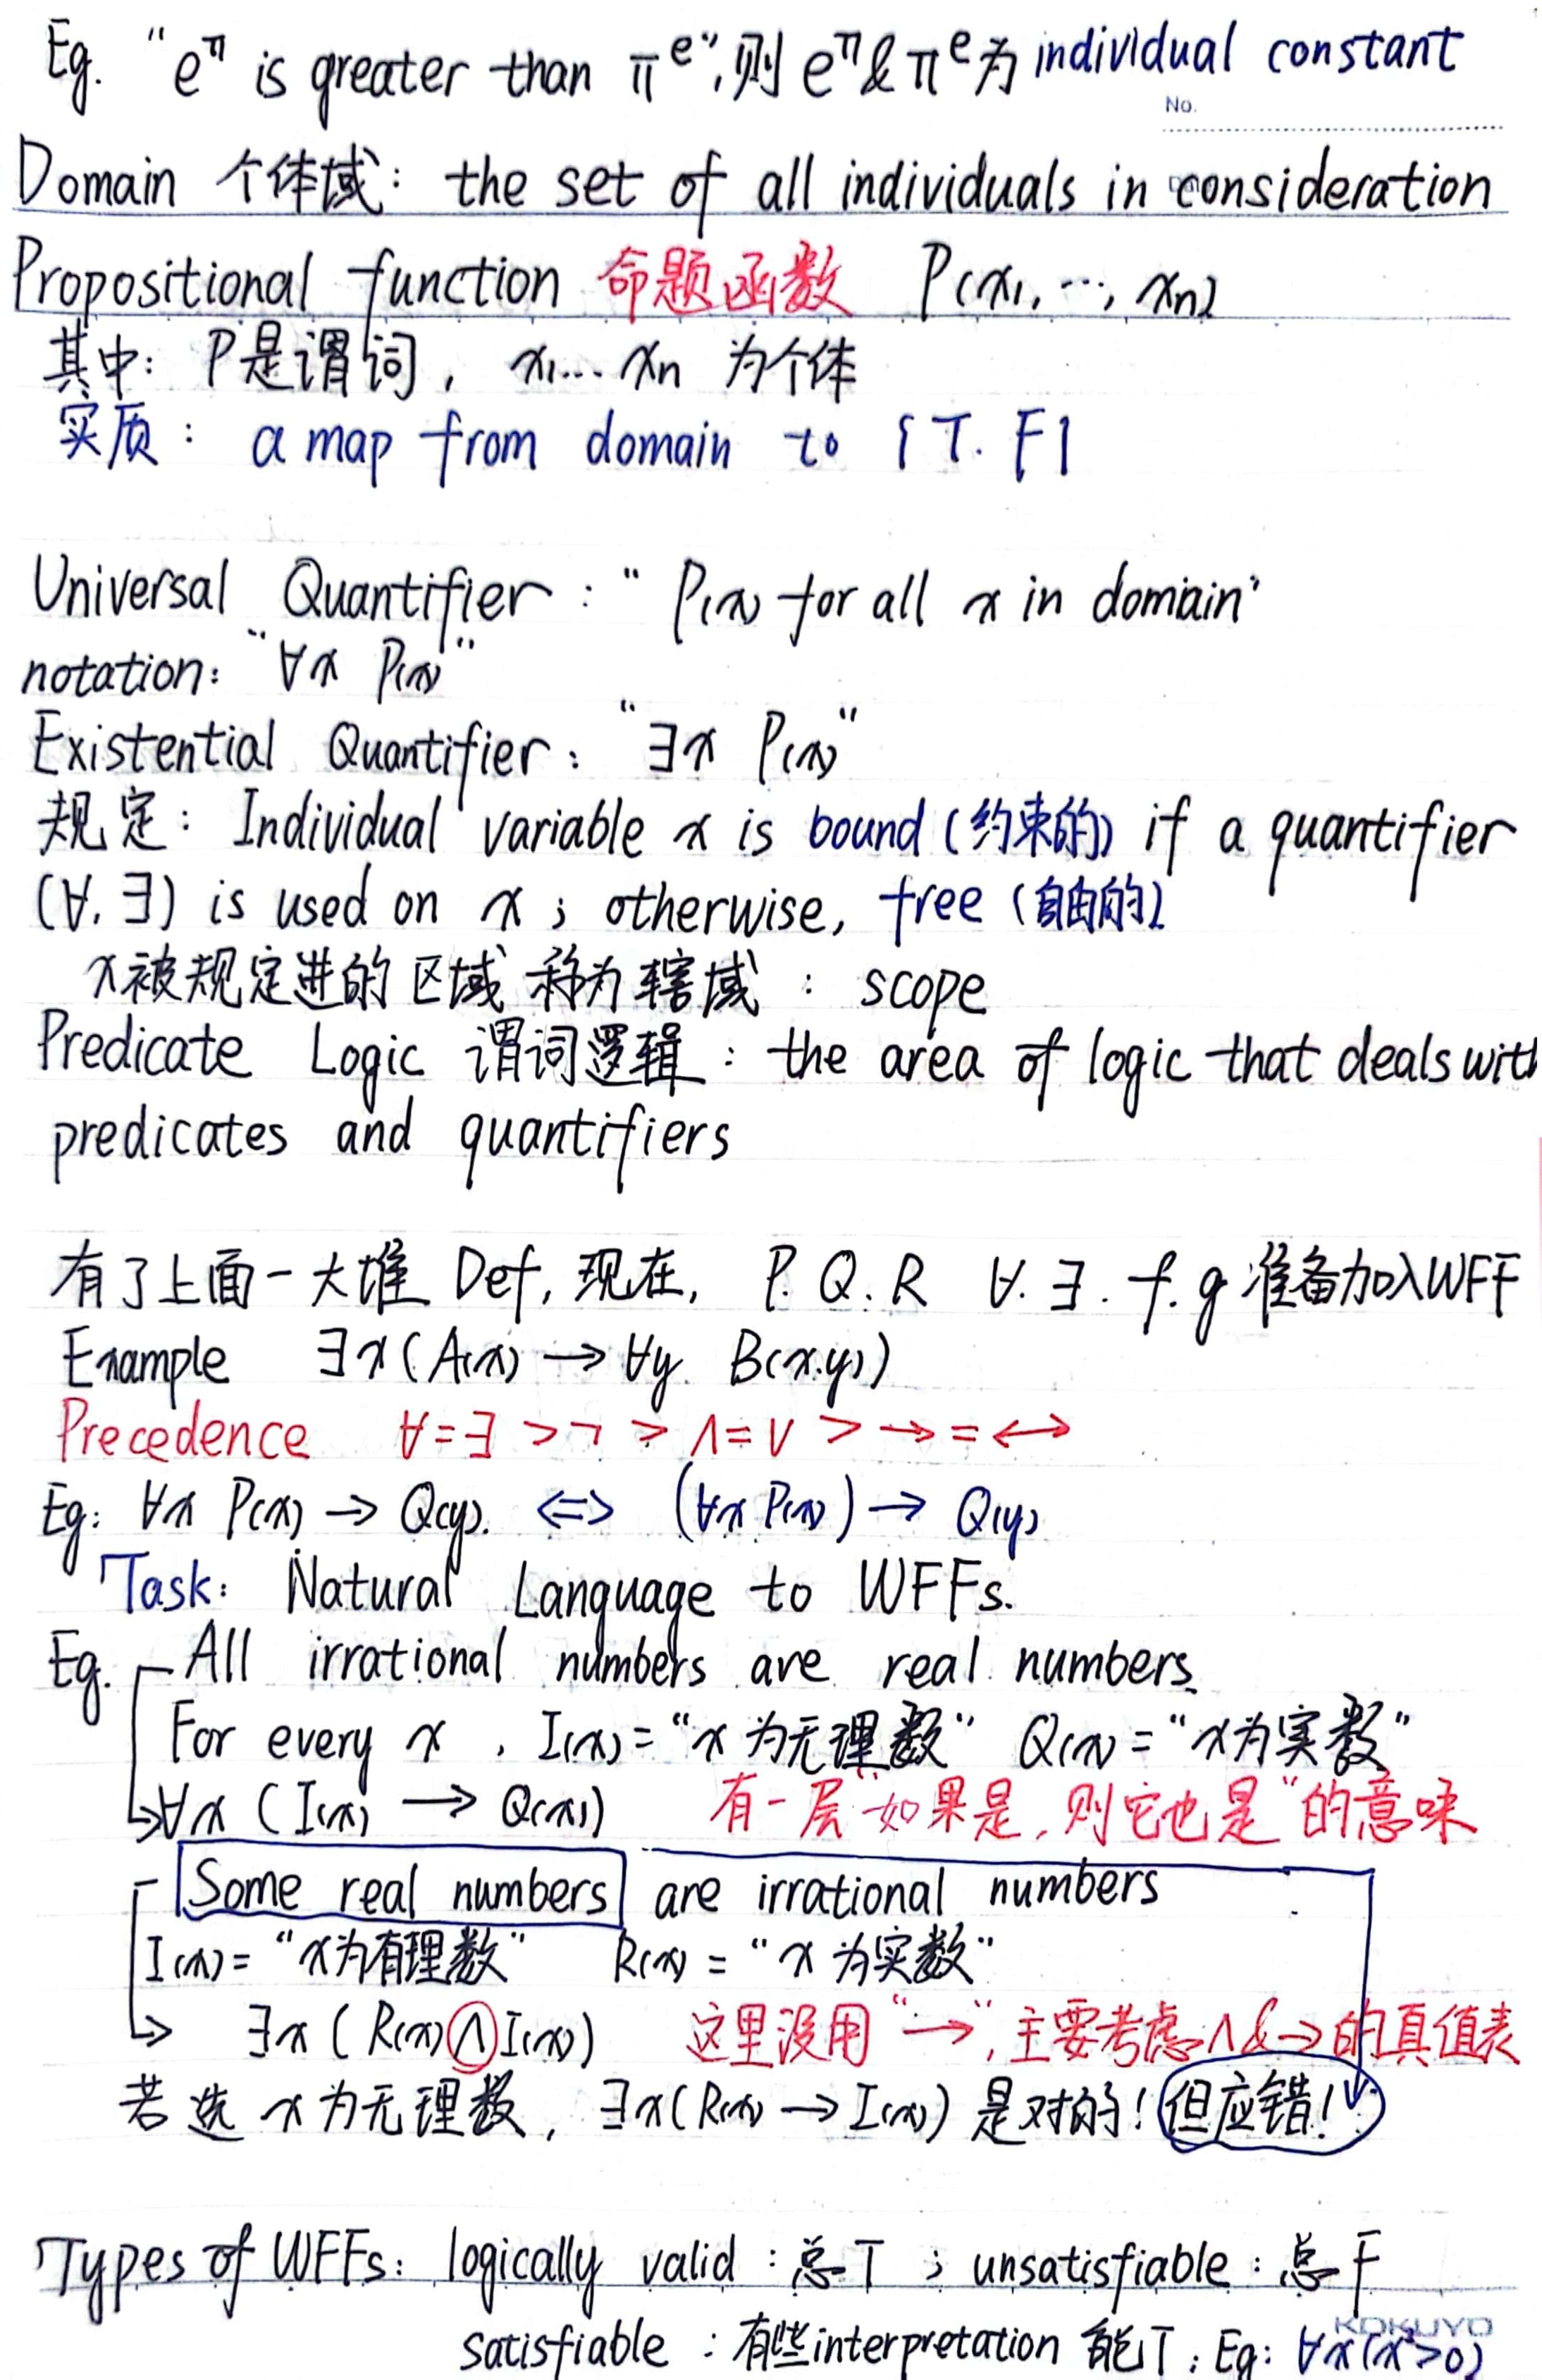 Eg. "e^π is greater than π^e", 则 e^π & π^e 为 individual constant
No.
Domain 个体域: the set of all individuals in consideration
Propositional function 命题函数 P(x₁, ..., xₙ)
其中: P是谓词, x₁... xₙ 为个体
实质: a map from domain to {T. F}
Universal Quantifier: "P(x) for all x in domain"
notation: "∀x P(x)"
Existential Quantifier: "∃x P(x)"
规定: Individual variable x is bound (约束的) if a quantifier
(∀. ∃) is used on x; otherwise, free (自由的)
x被规定进的区域 称为辖域: scope
Predicate Logic 谓词逻辑: the area of logic that deals with
predicates and quantifiers
有了上面一大堆 Def, 现在, P. Q. R ∀. ∃. f. g 准备加入WFF
Example ∃x (A(x) → ∀y. B(x.y))
Precedence ∀=∃ > ¬ > ∧=∨ > → = ↔
Eg: ∀x P(x) → Q(y). ⇔ (∀x P(x)) → Q(y)
Task: Natural Language to WFFs.
Eg. All irrational numbers are real numbers.
For every x, I(x) = "x 为无理数" Q(x) = "x为实数"
↳ ∀x (I(x) → Q(x)) 有一层"如果是, 则它也是"的意味
Some real numbers are irrational numbers
I(x) = "x为有理数" R(x) = "x 为实数"
↳ ∃x (R(x) ∧ I(x)) 这里没用"→", 主要考虑∧&→的真值表
若选 x 为无理数, ∃x (R(x) → I(x)) 是对的! 但应错!
Types of WFFs: logically valid: 总T; unsatisfiable: 总F
KOKUYO
satisfiable: 有些interpretation 能T; Eg: ∀x (x²>0)